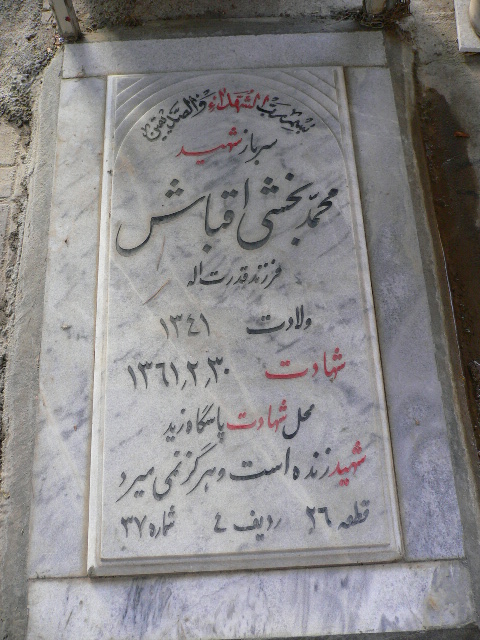 بسم رب الشهداء والصدیقین
سرباز شهید
محمد بخشی اقباش
فرزند قدرت اله
ولادت ۱۳۴۱
شهادت ۱۳۶۱٫۲٫۳۰
محل شهادت پاسگاه زید
شهید زنده است و هرگز نمی میرد
قطعه ۲۶ ردیف ٤ شماره ۳۷